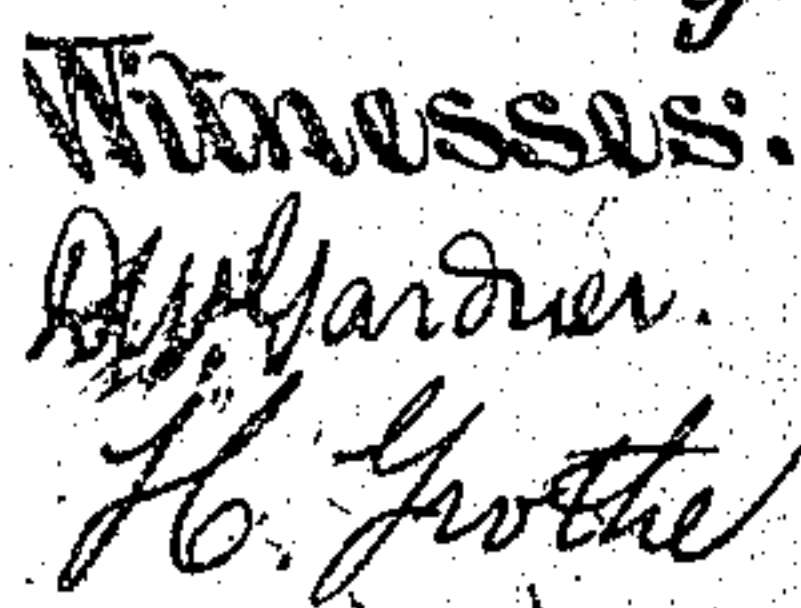 Witnesses.
Gardner.
H. Grothe